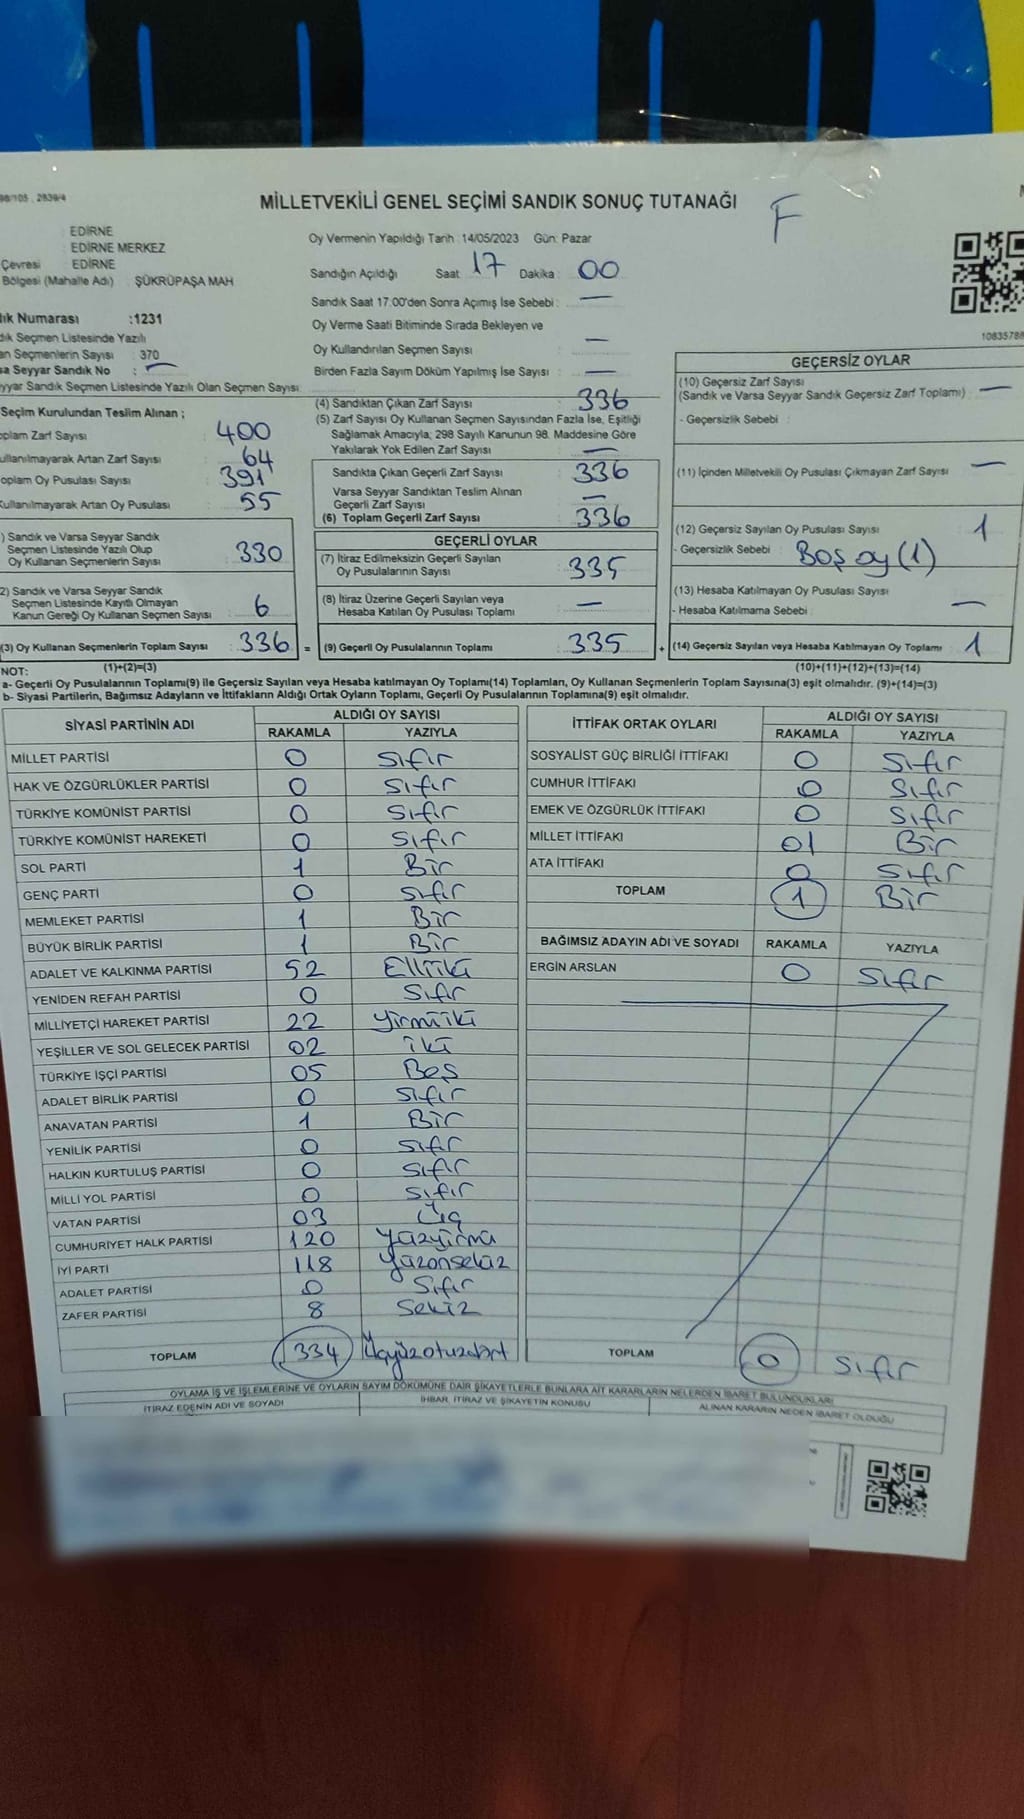 98/105 , 2839/4
MİLLETVEKİLİ GENEL SEÇİMİ SANDIK SONUÇ TUTANAĞI
F
: EDİRNE
: EDİRNE MERKEZ
Çevresi : EDİRNE
Bölgesi (Mahalle Adı) : ŞÜKRÜPAŞA MAH
Oy Vermenin Yapıldığı Tarih :14/05/2023 Gün: Pazar
Sandığın Açıldığı Saat 17 Dakika : 00
Sandık Saat 17.00'den Sonra Açımış İse Sebebi : —
Oy Verme Saati Bitiminde Sırada Bekleyen ve
Oy Kullandırılan Seçmen Sayısı : —
Birden Fazla Sayım Döküm Yapılmış İse Sayısı : —
ık Numarası :1231
dık Seçmen Listesinde Yazılı
an Seçmenlerin Sayısı : 370
sa Seyyar Sandık No : —
yyar Sandık Seçmen Listesinde Yazılı Olan Seçmen Sayısı
10835788
Seçim Kurulundan Teslim Alınan ;
oplam Zarf Sayısı : 400
ullanılmayarak Artan Zarf Sayısı : 64
oplam Oy Pusulası Sayısı : 391
Kullanılmayarak Artan Oy Pusulası : 55
) Sandık ve Varsa Seyyar Sandık
Seçmen Listesinde Yazılı Olup
Oy Kullanan Seçmenlerin Sayısı : 330
2) Sandık ve Varsa Seyyar Sandık
Seçmen Listesinde Kayıtlı Olmayan
Kanun Gereği Oy Kullanan Seçmen Sayısı : 6
(3) Oy Kullanan Seçmenlerin Toplam Sayısı : 336 =
(4) Sandıktan Çıkan Zarf Sayısı : 336
(5) Zarf Sayısı Oy Kullanan Seçmen Sayısından Fazla İse, Eşitliği
Sağlamak Amacıyla; 298 Sayılı Kanunun 98. Maddesine Göre
Yakılarak Yok Edilen Zarf Sayısı : —
Sandıkta Çıkan Geçerli Zarf Sayısı : 336
Varsa Seyyar Sandıktan Teslim Alınan
Geçerli Zarf Sayısı : —
(6) Toplam Geçerli Zarf Sayısı : 336
GEÇERLİ OYLAR
(7) İtiraz Edilmeksizin Geçerli Sayılan
Oy Pusulalarının Sayısı : 335
(8) İtiraz Üzerine Geçerli Sayılan veya
Hesaba Katılan Oy Pusulası Toplamı : —
(9) Geçerli Oy Pusulalarının Toplamı : 335 +
GEÇERSİZ OYLAR
(10) Geçersiz Zarf Sayısı
(Sandık ve Varsa Seyyar Sandık Geçersiz Zarf Toplamı) : —
- Geçersizlik Sebebi :
(11) İçinden Milletvekili Oy Pusulası Çıkmayan Zarf Sayısı : —
(12) Geçersiz Sayılan Oy Pusulası Sayısı : 1
- Geçersizlik Sebebi : Boş oy (1)
(13) Hesaba Katılmayan Oy Pusulası Sayısı : —
- Hesaba Katılmama Sebebi :
(14) Geçersiz Sayılan veya Hesaba Katılmayan Oy Toplamı : 1
NOT: (1)+(2)=(3) (10)+(11)+(12)+(13)=(14)
a- Geçerli Oy Pusulalarının Toplamı(9) ile Geçersiz Sayılan veya Hesaba katılmayan Oy Toplamı(14) Toplamları, Oy Kullanan Seçmenlerin Toplam Sayısına(3) eşit olmalıdır. (9)+(14)=(3)
b- Siyasi Partilerin, Bağımsız Adayların ve İttifakların Aldığı Ortak Oyların Toplamı, Geçerli Oy Pusulalarının Toplamına(9) eşit olmalıdır.
SİYASİ PARTİNİN ADI ALDIĞI OY SAYISI
RAKAMLA YAZIYLA
MİLLET PARTİSİ 0 Sıfır
HAK VE ÖZGÜRLÜKLER PARTİSİ 0 Sıfır
TÜRKİYE KOMÜNİST PARTİSİ 0 Sıfır
TÜRKİYE KOMÜNİST HAREKETİ 0 Sıfır
SOL PARTİ 1 Bir
GENÇ PARTİ 0 Sıfır
MEMLEKET PARTİSİ 1 Bir
BÜYÜK BİRLİK PARTİSİ 1 Bir
ADALET VE KALKINMA PARTİSİ 52 Elliiki
YENİDEN REFAH PARTİSİ 0 Sıfır
MİLLİYETÇİ HAREKET PARTİSİ 22 Yirmiiki
YEŞİLLER VE SOL GELECEK PARTİSİ 02 iki
TÜRKİYE İŞÇİ PARTİSİ 05 Beş
ADALET BİRLİK PARTİSİ 0 Sıfır
ANAVATAN PARTİSİ 1 Bir
YENİLİK PARTİSİ 0 Sıfır
HALKIN KURTULUŞ PARTİSİ 0 Sıfır
MİLLİ YOL PARTİSİ 0 Sıfır
VATAN PARTİSİ 03 Üç
CUMHURİYET HALK PARTİSİ 120 Yüzyirmi
İYİ PARTİ 118 Yüzonsekiz
ADALET PARTİSİ 0 Sıfır
ZAFER PARTİSİ 8 Sekiz
TOPLAM 334 Üçyüzotuzdört
İTTİFAK ORTAK OYLARI ALDIĞI OY SAYISI
RAKAMLA YAZIYLA
SOSYALİST GÜÇ BİRLİĞİ İTTİFAKI 0 Sıfır
CUMHUR İTTİFAKI 0 Sıfır
EMEK VE ÖZGÜRLÜK İTTİFAKI 0 Sıfır
MİLLET İTTİFAKI 01 Bir
ATA İTTİFAKI 0 Sıfır
TOPLAM 1 Bir
BAĞIMSIZ ADAYIN ADI VE SOYADI RAKAMLA YAZIYLA
ERGİN ARSLAN 0 Sıfır
TOPLAM 0 Sıfır
OYLAMA İŞ VE İŞLEMLERİNE VE OYLARIN SAYIM DÖKÜMÜNE DAİR ŞİKAYETLERLE BUNLARA AİT KARARLARIN NELERDEN İBARET BULUNDUNLARI
İTİRAZ EDENİN ADI VE SOYADI İHBAR, İTİRAZ VE ŞİKAYETİN KONUSU ALINAN KARARIN NEDEN İBARET OLDUĞU